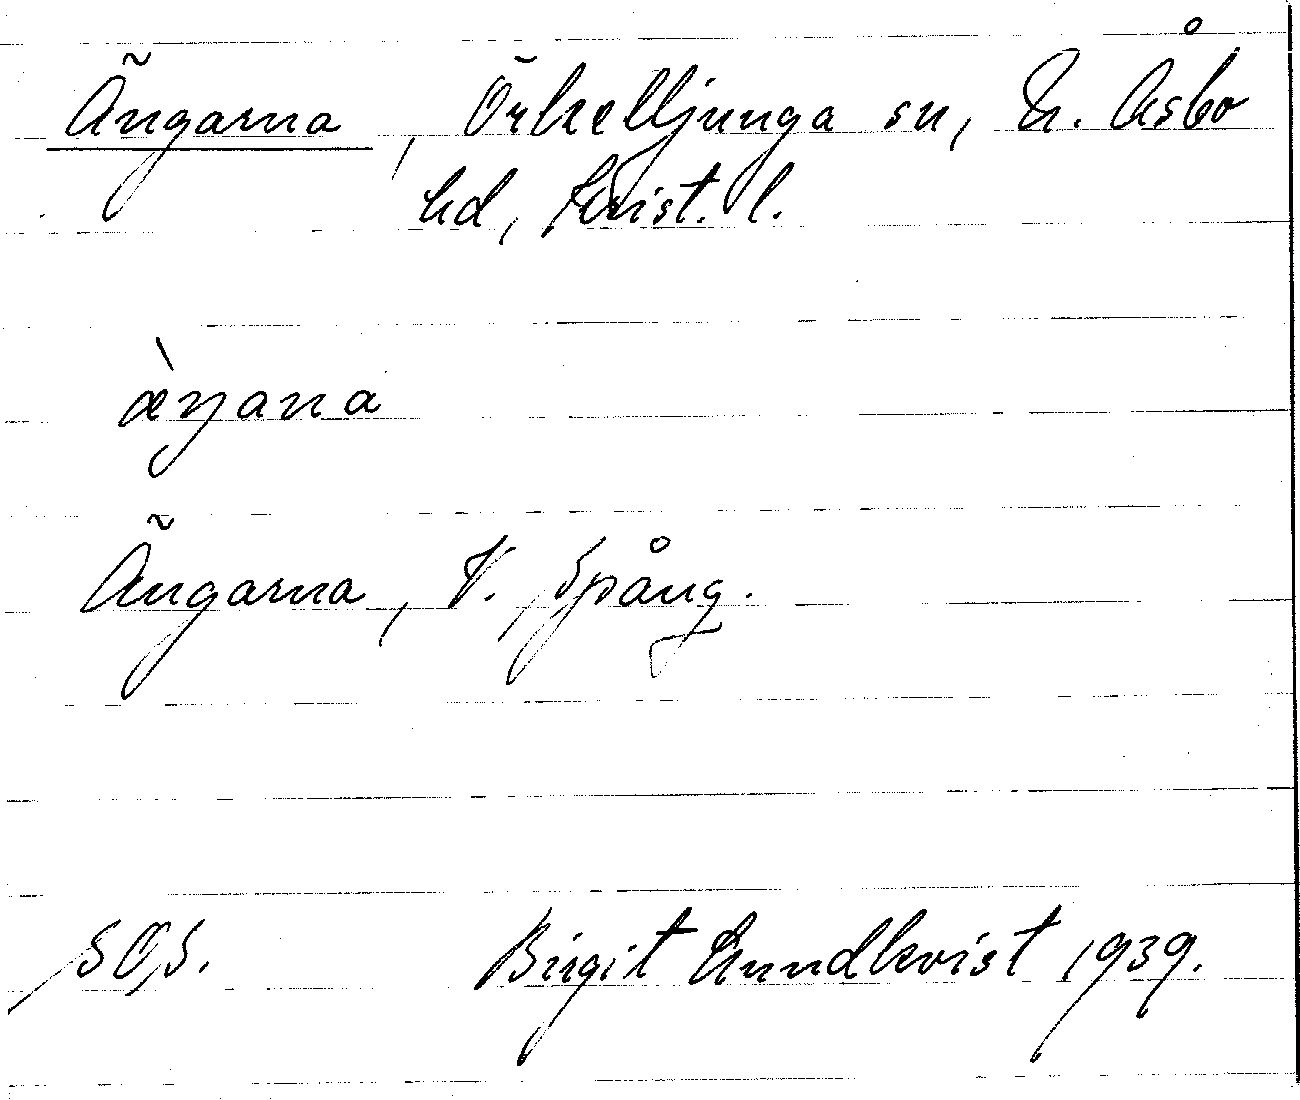 Ängarna, Örkelljunga sn, N. Åsbo
hd, Krist. l.
æ̀ŋana
Ängarna, V. Spång.
SOS. Birgit Lundkvist 1939.